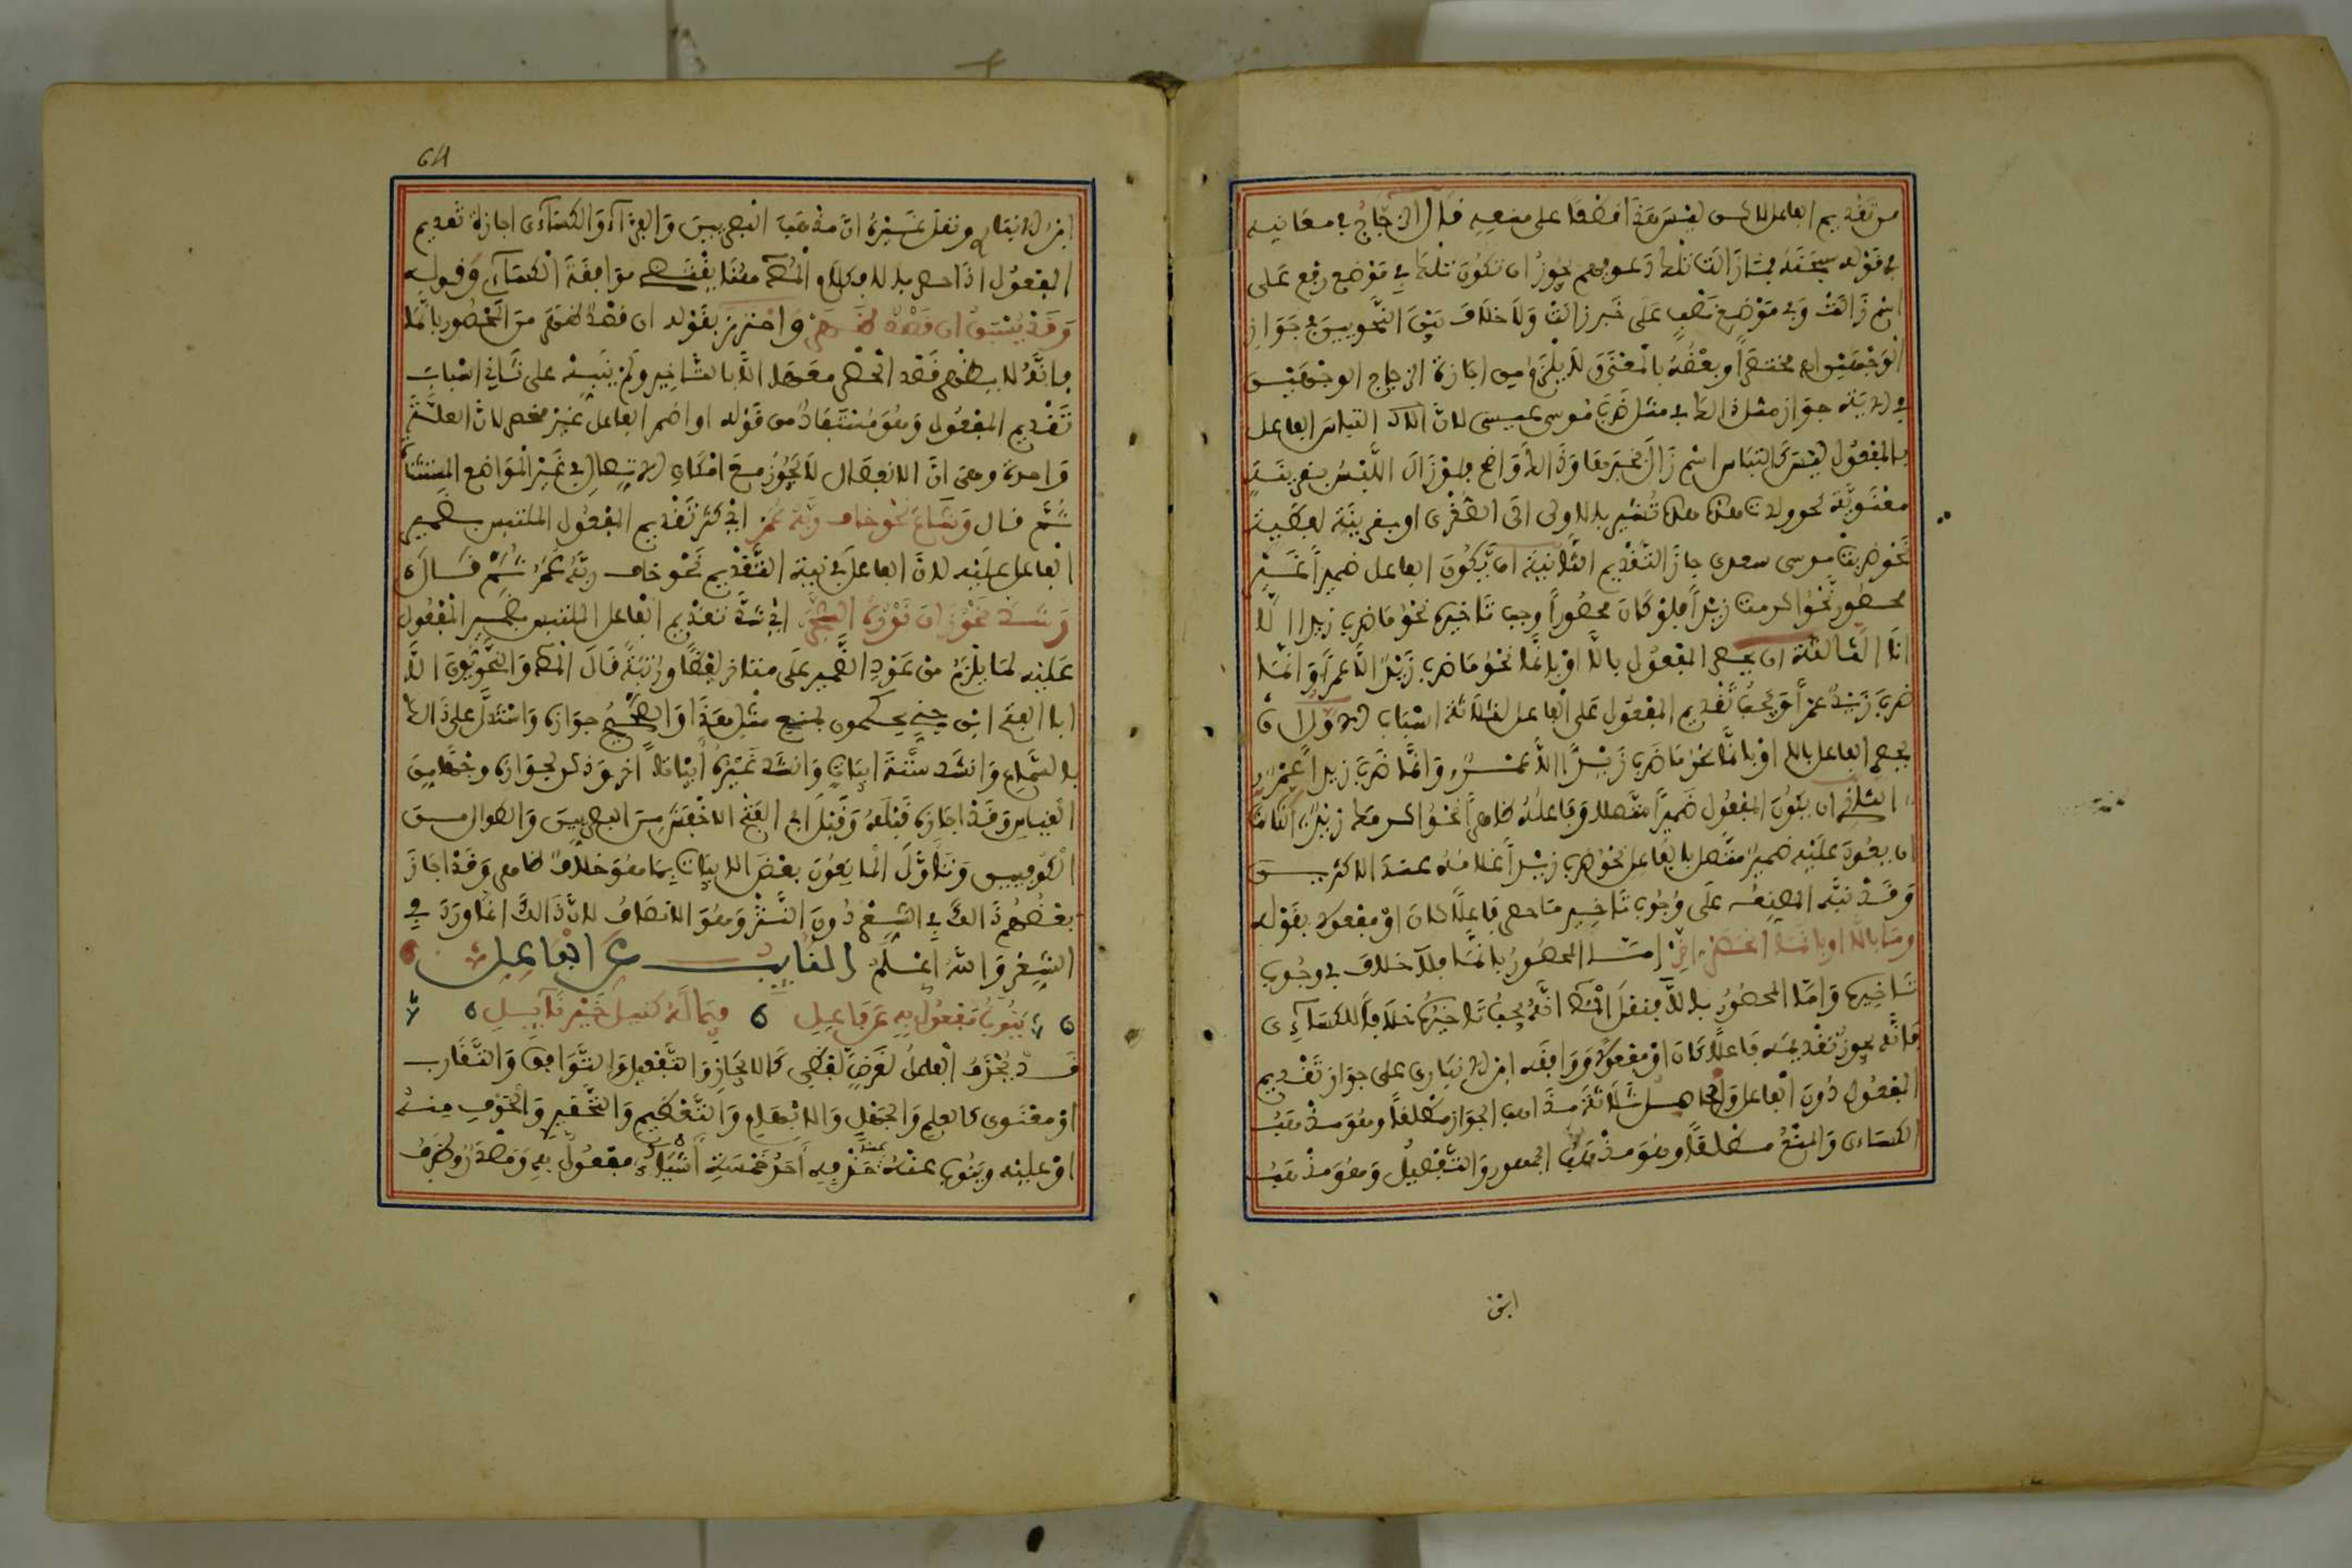 من تقديم الفاعل للالبس ليس هذا افصحا على منعه قال الزجاج في معانيه
في قوله سبحانه فما زالت تلك دعويهم يجوز ان تكون تلك في موضع رفع على
اسم زالت وفي موضع نصب على خبر زالت ولا خلاف بين النحويين في جواز
الوجهين مختصرا وبعضه بالمعنى ولا يلزم من اجازة الزجاج الوجهين
في الاية جواز مثل ذلك في مثل ضرب موسى عيسى لان التباس الفاعل
بالمفعول ليس كالتباس اسم زال بخبرها وذلك واضح فلو زال اللبس بقرينة
معنوية نحو ولدت هذه هذه تشير بالاولى الى الصغرى او بقرينة لفظية
نحو ضربت موسى سعدى جاز التقديم الثانية ان يكون الفاعل ضميرا غير
محصور نحو اكرمت زيدا فلو كان محصورا وجب تاخيره نحو ما ضرب زيدا الا
انا الثالثة ان يحصر المفعول بالا او بانما نحو ما ضرب زيد الا عمرا وانما
ضرب زيد عمرا ويجب تقديم المفعول على الفاعل لثلاثة اسباب الاول ان
يحصر الفاعل بالا او بانما نحو ما ضرب زيدا الا عمرو وانما ضرب زيدا عمرو
الثاني ان يكون المفعول ضميرا متصلا وفاعله ظاهرا نحو اكرمك زيد الثالث
ان يعود عليه ضمير متصل بالفاعل نحو ضرب زيدا غلامه عند الاكثرين
وقد نبه المصنف على وجوب تاخير ما حصر فاعلا كان او مفعولا بقوله
وما بالا او بانما انحصر اخر اما المحصور بانما فلا خلاف في وجوب
تاخيره واما المحصور بالا فنقل المص انه يجب تاخيره خلافا للكساءي
فانه يجوز تقديمه فاعلا كان او مفعولا ووافقه ابن الانباري على جواز تقديم
المفعول دون الفاعل والحاصل ثلاثة مذاهب الجواز مطلقا وهو مذهب
الكساءى والمنع مطلقا وهو مذهب الجمهور والتفصيل وهو مذهب
ابن
64
ابن الانباري ونقل غيره ان مذهب البصريين والفراء والكساءى اجازة تقديم
المفعول اذا حصر بالا وكلام المص هنا يقتضي موافقة الكساءي وقوله
وقد يسبق ان قصد ظهر واحترز بقوله ان قصد ظهر من المحصور بانما
فانه لا يظهر قصد الحصر معها الا بالتاخير ولم ينبه على ثاني اسباب
تقديم المفعول وهو مستفاد من قوله او اضمر الفاعل غير منحصر لان العلة
واحدة وهي ان الانفصال لا يجوز مع امكان الاتصال في غير المواضع المستثناة
ثم قال وشاع نحو خاف ربه عمر اي كثر تقديم المفعول الملتبس بضمير
الفاعل عليه لان الفاعل في نية التقديم نحو خاف ربه عمر ثم قال
وشذ نحو زان نوره الشجر اي شذ تقديم الفاعل الملتبس بضمير المفعول
عليه لما يلزم من عود الضمير على متاخر لفظا ورتبة قال المص والنحويون الا
ابا الفتح ابن جني يحكمون بمنع مثل هذا والصحيح جوازه واستدل على ذلك
بالسماع وانشد ستة ابيات وانشد غيره ابياتا اخر وذكر لجوازه وجها من
القياس وقد اجازه قبله وقبل ابي الفتح الاخفش من البصريين والطوال من
الكوفيين وتاول المانعون بعض الابيات بما هو خلاف ظاهر وقد اجاز
بعضهم ذلك في الشعر دون النثر وهو الانصاف لان ذلك انما ورد في
الشعر والله اعلم النايب عن الفاعل
ينوب مفعول به عن فاعل فيما له كنيل خير نايل
قد يحذف الفاعل لغرض لفظي كالايجاز والتفعيل والتوافق والتقارب
او معنوى كالعلم والجهل والابهام والتعظيم والتحقير والخوف منه
او عليه وينوب عنه عند حذفه احد خمسة اشياء مفعول به ومصدر وظرف